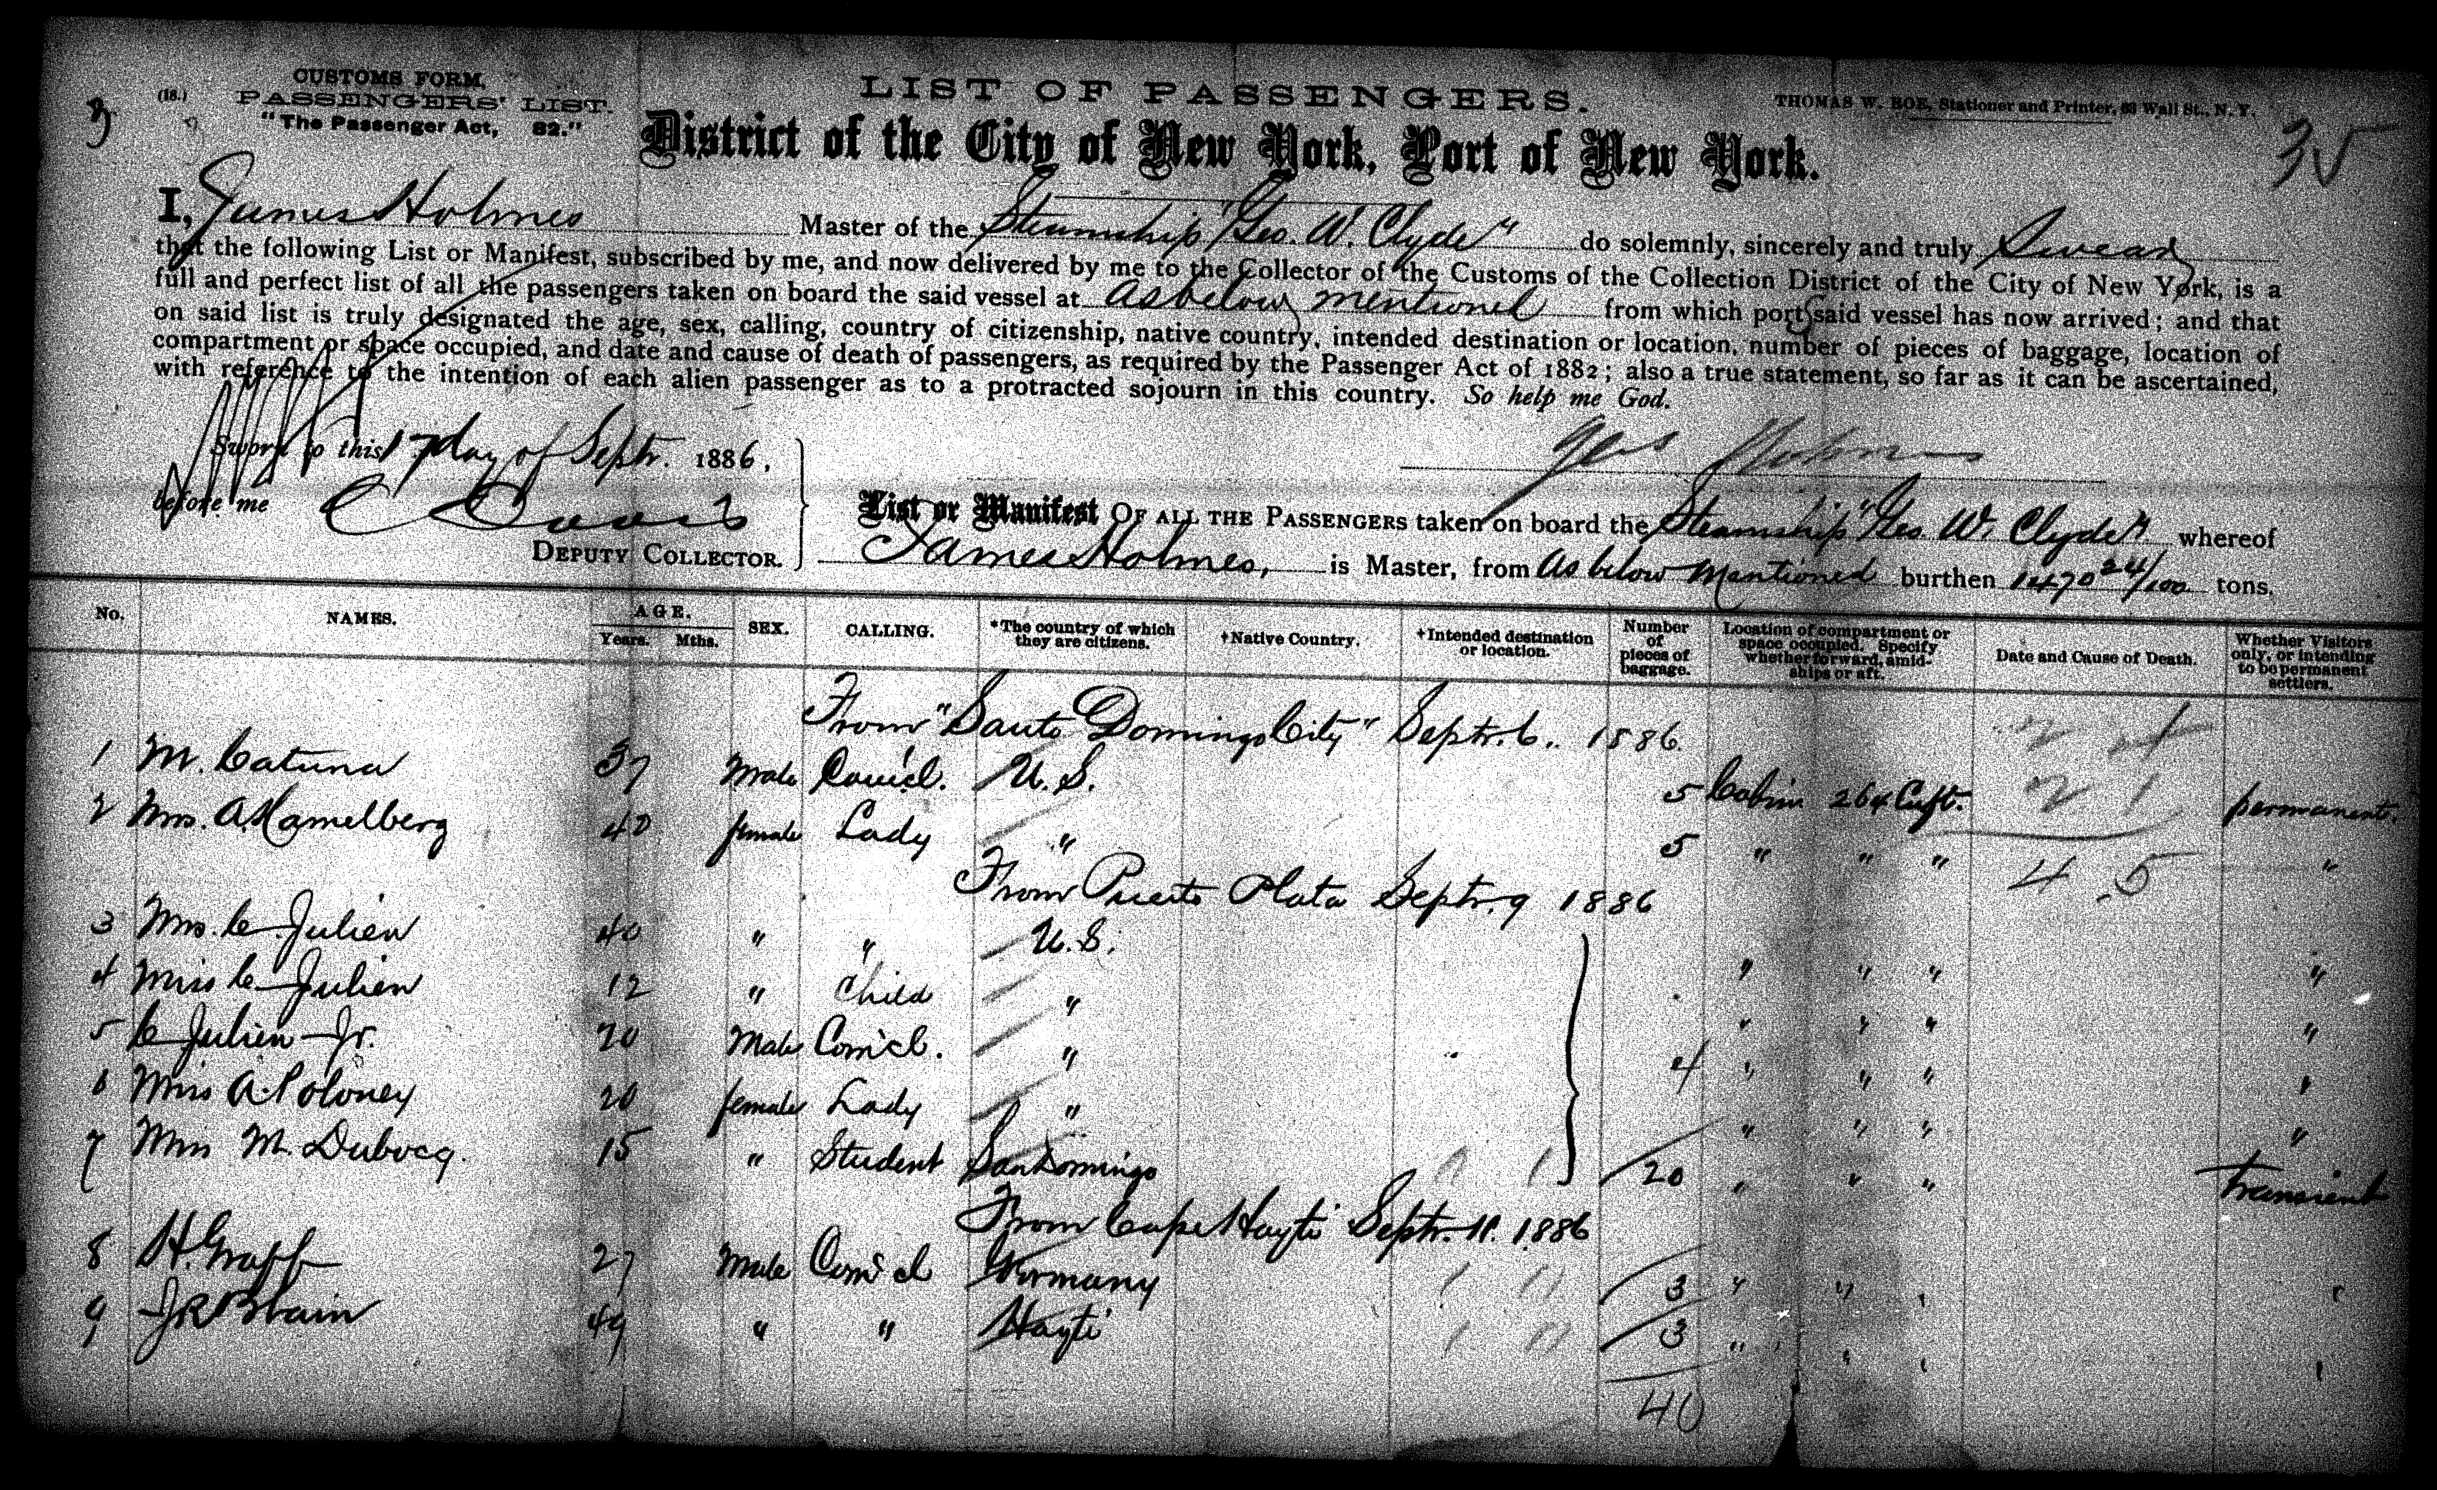 3
(18.)
CUSTOMS FORM,
PASSENGERS' LIST.
"The Passenger Act, 82."
LIST OF PASSENGERS.
THOMAS W. BOE, Stationer and Printer, 63 Wall St., N. Y.
35
District of the City of New York, Port of New York.
I, James Holmes Master of the Steamship "Geo. W. Clyde" do solemnly, sincerely and truly Swear
that the following List or Manifest, subscribed by me, and now delivered by me to the Collector of the Customs of the Collection District of the City of New York, is a
full and perfect list of all the passengers taken on board the said vessel at as below mentioned from which ports said vessel has now arrived; and that
on said list is truly designated the age, sex, calling, country of citizenship, native country, intended destination or location, number of pieces of baggage, location of
compartment or space occupied, and date and cause of death of passengers, as required by the Passenger Act of 1882; also a true statement, so far as it can be ascertained,
with reference to the intention of each alien passenger as to a protracted sojourn in this country. So help me God.
Sworn to this 17 day of Septr. 1886,
Jas Holmes
before me C Davis
DEPUTY COLLECTOR.
List or Manifest OF ALL THE PASSENGERS taken on board the Steamship "Geo. W. Clyde" whereof
James Holmes, is Master, from As below Mentioned burthen 1470 24/100 tons.
No. NAMES. AGE. Years. Mths. SEX. CALLING. *The country of which they are citizens. †Native Country. †Intended destination or location. Number of pieces of baggage. Location of compartment or space occupied. Specify whether forward, amidships or aft. Date and Cause of Death. Whether Visitors only, or intending to be permanent settlers.
From "Santo Domingo City" Septr. 6.. 1886.
1 M. Catuna 37 Male Com'cl. U. S. 5 Cabin 264 Cuft. 2 1 permanent.
2 Mrs. A. Hamelberg 40 female Lady " 5 " " " 4 5 "
From Puerto Plata Septr. 9 1886
3 Mrs. C Julien 40 " " U. S. " " " "
4 Miss C Julien 12 " Child " " " " "
5 C Julien Jr. 20 Male Com'cl. " 4 " " " "
6 Miss A. Poloney 20 female Lady " " " " "
7 Miss M. Dubocq. 15 " Student San Domingo 20 " " " transient
From Cape Hayti Septr. 11. 1886
8 H. Graff 27 Male Com'cl Germany 1 11 3 " " " "
9 J R Brain 49 " " Hayti 1 11 3 " " " "
40